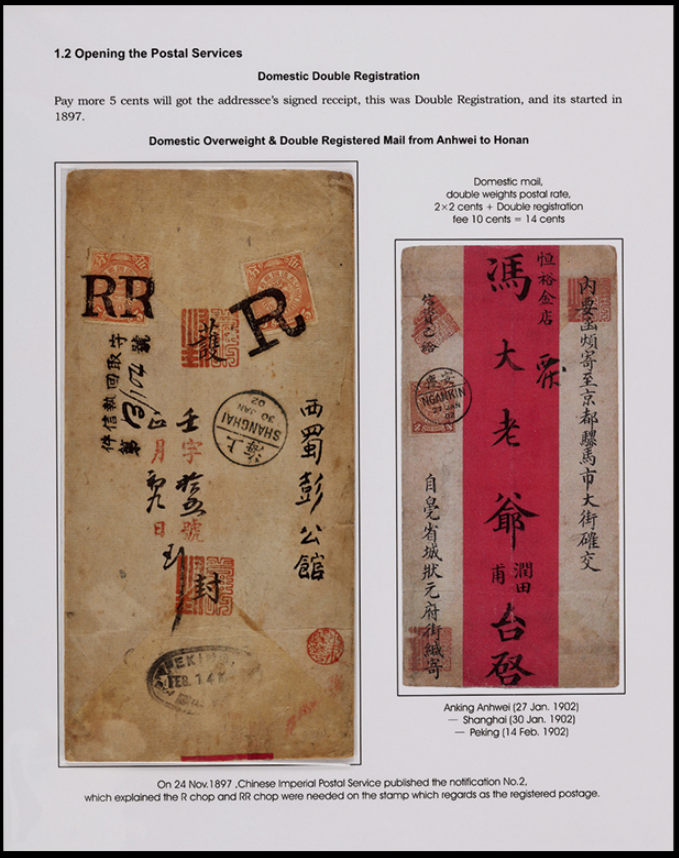 1.2 Opening the Postal Services
Domestic Double Registration
Pay more 5 cents will got the addressee's signed receipt, this was Double Registration, and its started in
1897.
Domestic Overweight & Double Registered Mail from Anhwei to Honan
RR
R
護
守取回執信件
第
SHANGHAI
30 JAN
02
海上
壬字
號
月
日
封
西蜀彭公館
PEKIN
FEB. 14
Domestic mail,
double weights postal rate,
2×2 cents + Double registration
fee 10 cents = 14 cents
內要函煩寄至京都騾馬市大街確交
恒裕金店
馮大老爺
潤田
甫
台啓
安慶
NGANKIN
27 JAN
02
自皖省城狀元府街緘寄
Anking Anhwei (27 Jan. 1902)
— Shanghai (30 Jan. 1902)
— Peking (14 Feb. 1902)
On 24 Nov.1897 ,Chinese Imperial Postal Service published the notification No.2,
which explained the R chop and RR chop were needed on the stamp which regards as the registered postage.